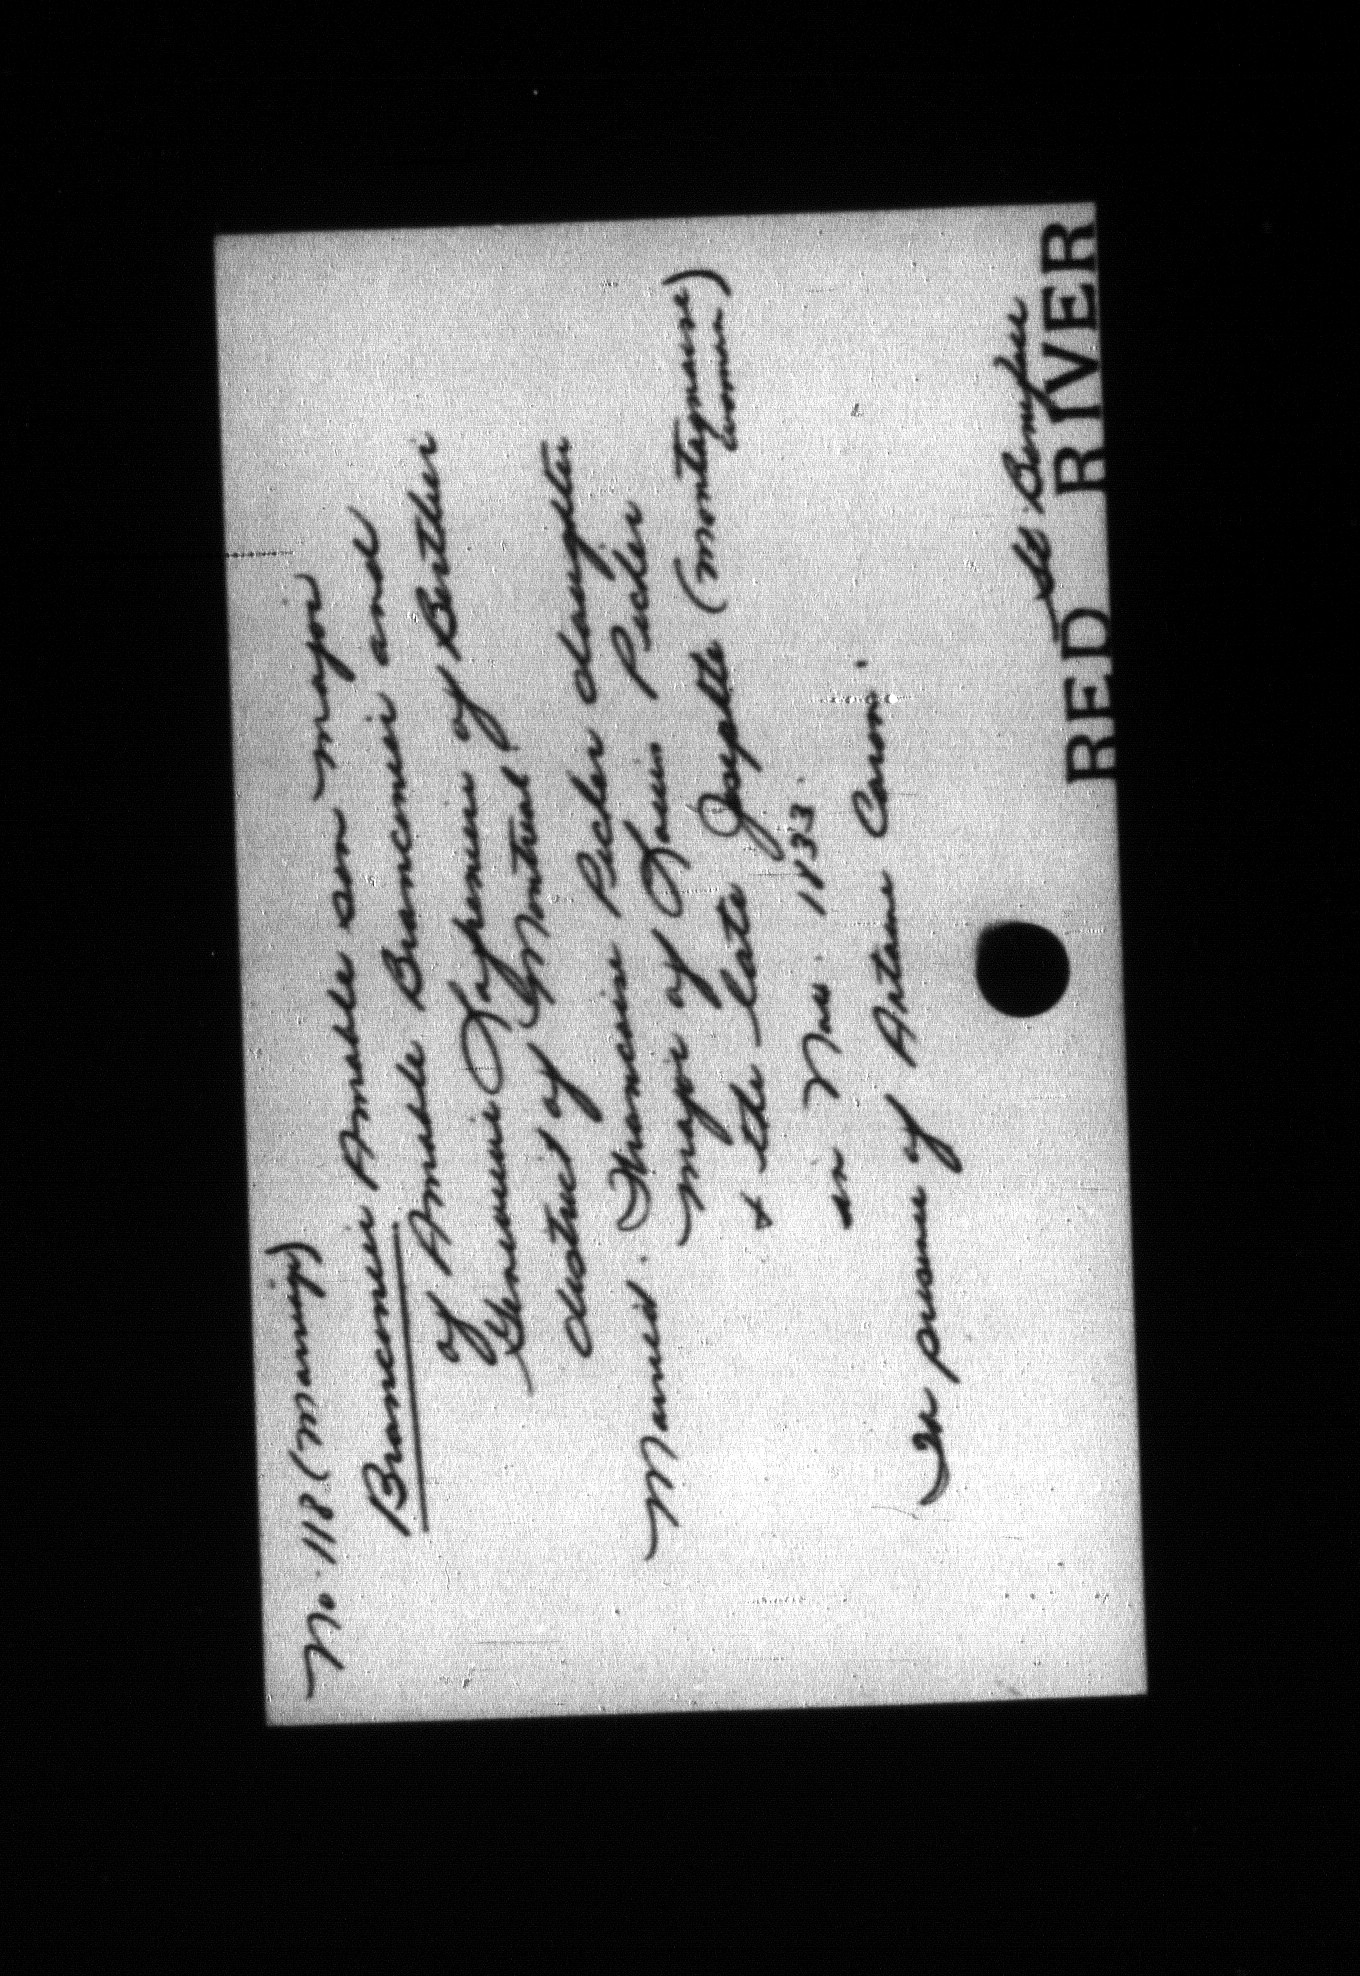 No. 118 (Marriage)
Branconier Amable son major
of Amable Branconier and
Genevieve Laferniere of Berthier
district of Montreal
Married. Francoise Picher daughter
major of Louis Picher
& the late Josephte (Montagnaise
woman)
in Nov. 1833.
In presence of Antoine Caron.
St. Boniface
RED RIVER